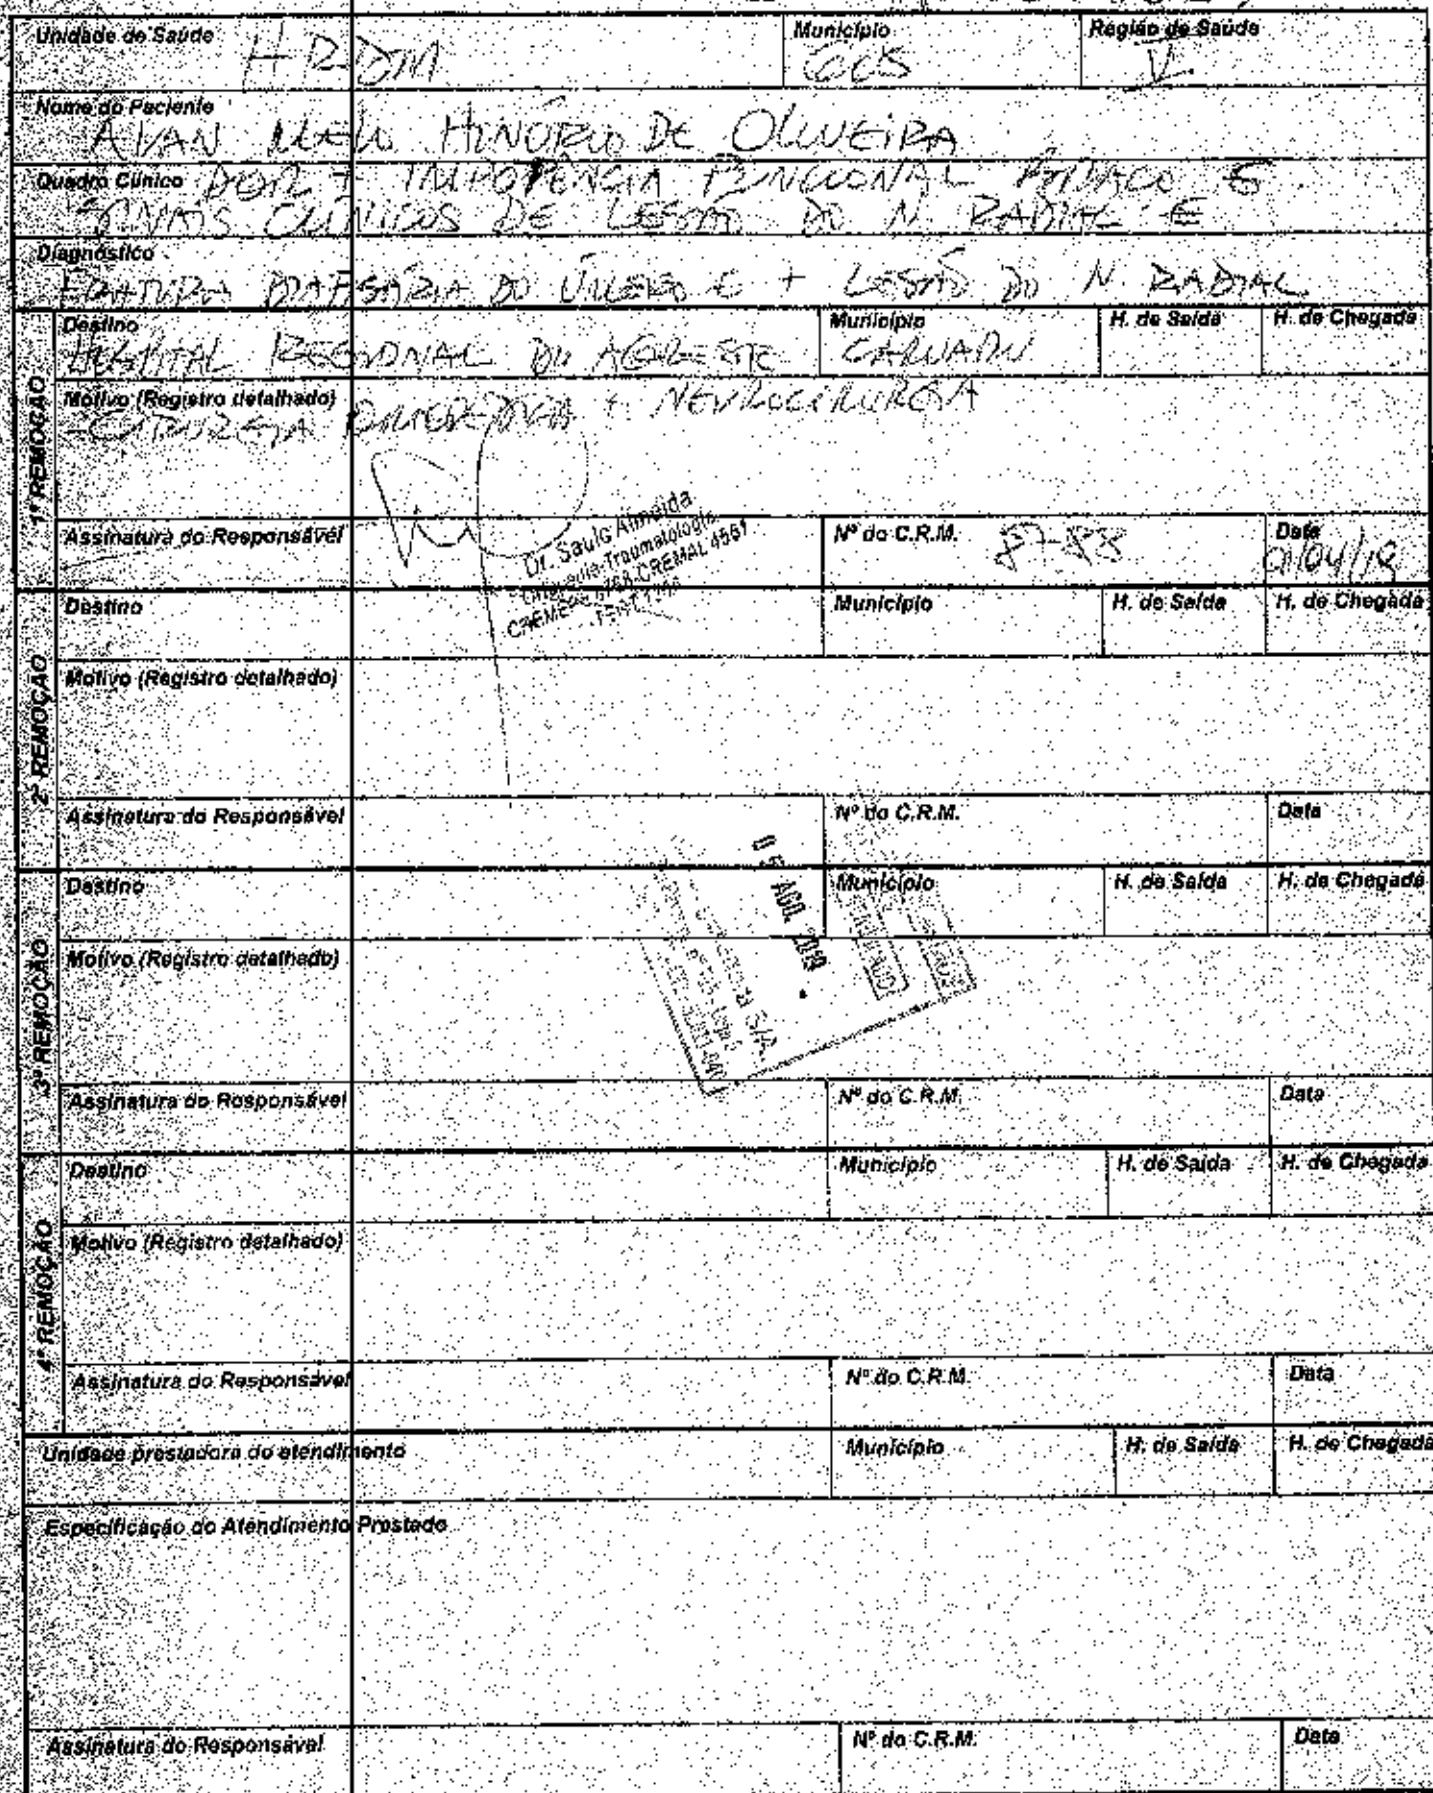 Unidade de Saúde HRDM Município Região de Saúde V
Nome do Paciente
AIVAN MELO HONÓRIO DE OLIVEIRA
Quadro Clínico DOR + IMPOTÊNCIA FUNCIONAL BRAÇO E
SINAIS CLÍNICOS DE LESÃO DO N. RADIAL E
Diagnóstico
FRATURA DIAFISÁRIA DO ÚMERO E + LESÃO DO N. RADIAL
1ª REMOÇÃO
Destino Município H. de Saída H. de Chegada
HOSPITAL REGIONAL DO AGRESTE CARUARU
Motivo (Registro detalhado)
- CIRURGIA ORTOPÉDICA + NEUROCIRURGIA
Dr. Saulo Almeida
Ortopedia-Traumatologia
CREMAL 4561
Assinatura do Responsável Nº do C.R.M. Data 01/04/19
2ª REMOÇÃO
Destino Município H. de Saída H. de Chegada
Motivo (Registro detalhado)
Assinatura do Responsável Nº do C.R.M. Data
3ª REMOÇÃO
Destino Município H. de Saída H. de Chegada
AGO. 2019
S/A
Motivo (Registro detalhado)
Assinatura do Responsável Nº do C.R.M. Data
4ª REMOÇÃO
Destino Município H. de Saída H. de Chegada
Motivo (Registro detalhado)
Assinatura do Responsável Nº do C.R.M. Data
Unidade prestadora do atendimento Município H. de Saída H. de Chegada
Especificação do Atendimento Prestado
Assinatura do Responsável Nº do C.R.M. Data